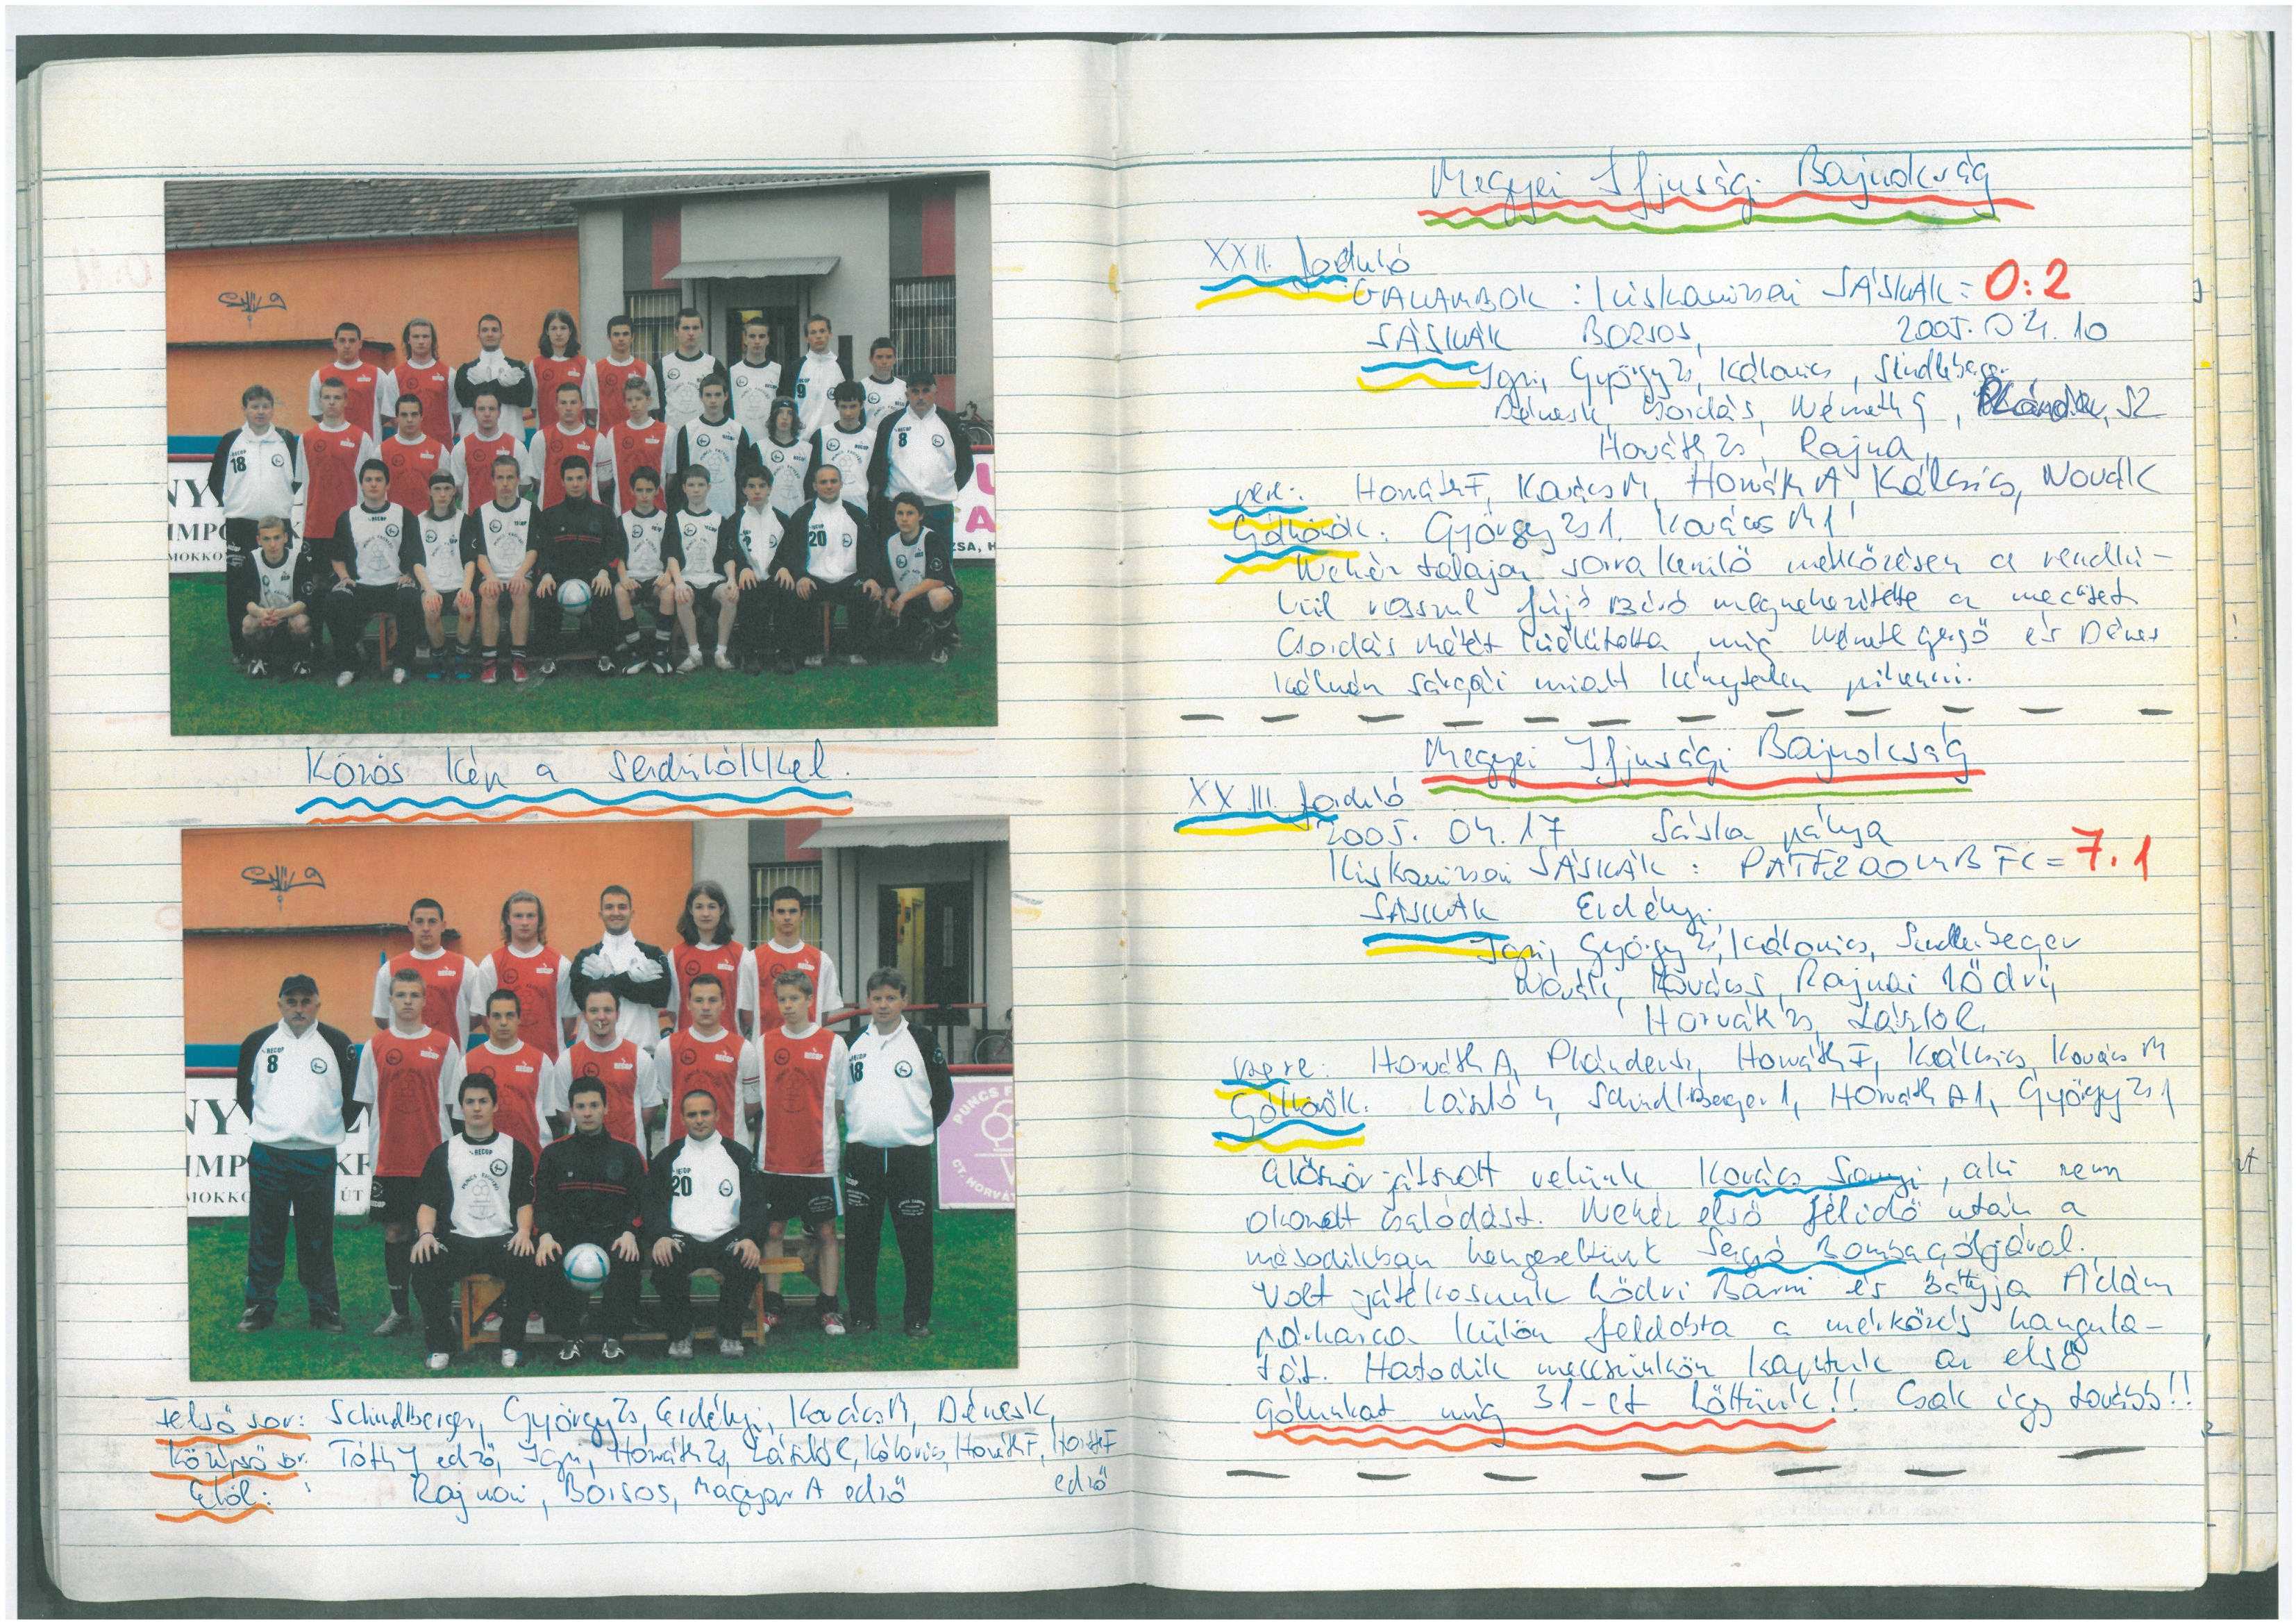 Közös kép a serdülőkkel.
Felső sor: Schindlberger, György Zs, Erdélyi, Kovács M, Dénes K,
Középső sor: Tóth J edző, Igri, Horváth Zs, László R, Kálovics, Horváth F, Horváth F
edző
Elöl: Rajnai, Borsos, Magyar A edző
18
8
9
2
20
NY
IMPO
MOKKO
ZSA, H
8
18
20
RECOP
NY
IMP
KF
MOKKO
ÚT
PUNCS F
CT. HORVÁT
Megyei Ifjusági Bajnokság
XXII. forduló
GALAMBOK : Kiskanizsai SÁSKÁK = 0:2
SÁSKÁK BORSOS, 2005. 04. 10
Igri, György Zs, Kálovics, Sindlberger
Dénes K, Csordás, Németh G,
Horváth Zs, Rajna,
Horváth F, Kovács M, Horváth A, Kálcsics, Novák
Góllövők: György Zs 1, Kovács M 1
Nehéz talajon sorra kerülő mérkőzésen a rendkí-
vül rosszul fújó Bíró megnehezítette a meccset
Csordás Mátét kiállította, míg Németh Gergő és Dénes
Kálmán sárgái miatt kénytelen pihenni.
Megyei Ifjusági Bajnokság
XXIII. forduló
2005. 04. 17 Sáska pálya
Kiskanizsai SÁSKÁK : PATE ZALAKOMÁR FC = 7:1
SÁSKÁK Erdélyi
Igri, György Zs, Kálovics, Sindlberger
Novák, Kovács S, Rajnai, Lődri,
Horváth Zs, László R,
csere: Horváth A, Plánder Sz, Horváth F, Kálcsics, Kovács M
Góllövők: László 4, Schindlberger 1, Horváth A 1, György Zs 1
Először játszott velünk Kovács Sanyi, aki nem
okozott csalódást. Nehéz első félidő után a
másodikban hengereltünk Bomba góljával.
Volt játékosunk Lődri Barni és Bátyja Ádám
párharca külön feldobta a mérkőzés hangula-
tát. Hatodik meccsünkön kaptuk az első
gólunkat míg 31-et lőttünk!! Csak így tovább!!